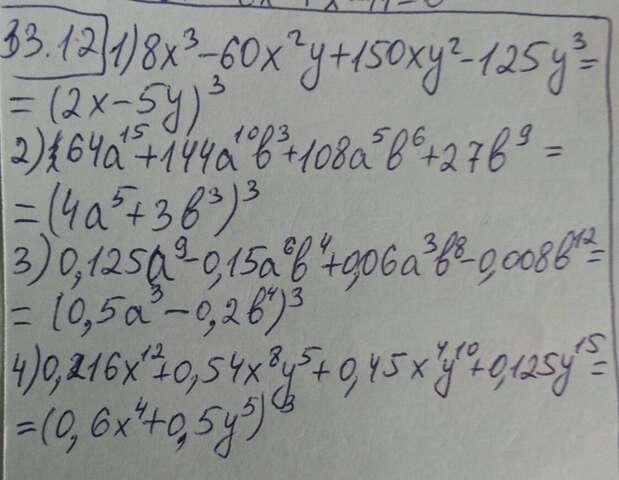 33.12 1) 8x³-60x²y+150xy²-125y³=
=(2x-5y)³
2) 64a¹⁵+144a¹⁰b³+108a⁵b⁶+27b⁹=
=(4a⁵+3b³)³
3) 0,125a⁹-0,15a⁶b⁴+0,06a³b⁸-0,008b¹²=
=(0,5a³-0,2b⁴)³
4) 0,216x¹²+0,54x⁸y⁵+0,45x⁴y¹⁰+0,125y¹⁵=
=(0,6x⁴+0,5y⁵)³